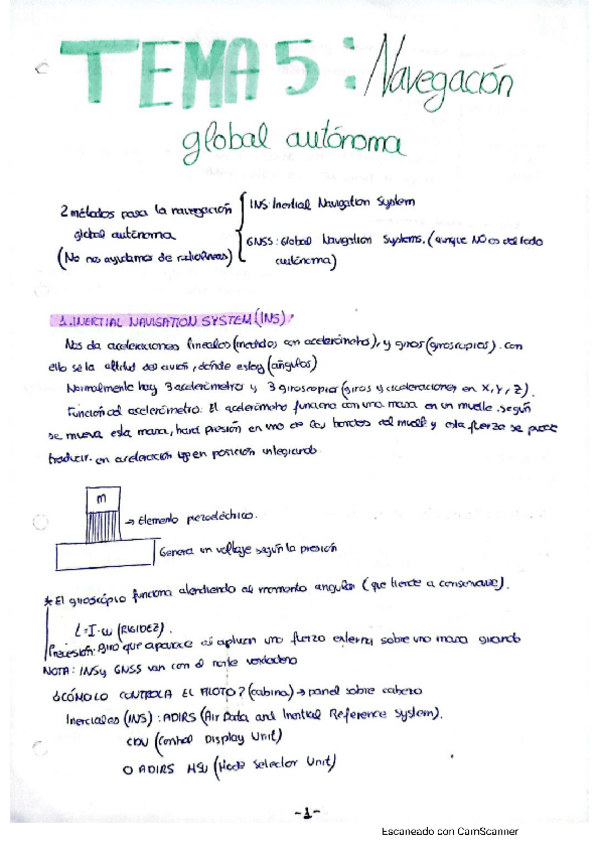 TEMA 5: Navegación
global autónoma
2 métodos para la navegación
global autónoma
(No nos ayudamos de radiolíneas)
INS: Inertial Navigation System
GNSS: Global Navigation Systems. (aunque NO es del todo
autónoma)
1. INERTIAL NAVIGATION SYSTEM (INS):
Nos da aceleraciones lineales (medidas con acelerómetro), y giros (giroscopios). Con
ello se la altitud del avión, dónde estoy (ángulos)
Normalmente hay 3 acelerómetro y 3 giroscopios (giros y aceleraciones en X, Y, Z).
Función del acelerómetro: El acelerómetro funciona con una masa en un muelle. Según
se mueva esta masa, hará presión en uno de los bordes del muelle y esta fuerza se puede
traducir en aceleración y en posición integrando.
m
→ Elemento piezoeléctrico.
Genera un voltaje según la presión
* El giroscópio funciona atendiendo al momento angular (que tiende a conservarse).
L=I·ω (RIGIDEZ).
Precesión: Giro que aparece si aplican una fuerza externa sobre una masa girando
NOTA: INS y GNSS van con el norte verdadero
¿CÓMO LO CONTROLA EL PILOTO? (cabina) → panel sobre cabeza
Inerciales (INS): ADIRS (Air Data and Inertial Reference System).
CDU (Control Display Unit)
O ADIRS MSU (Mode Selector Unit)
-1-
Escaneado con CamScanner